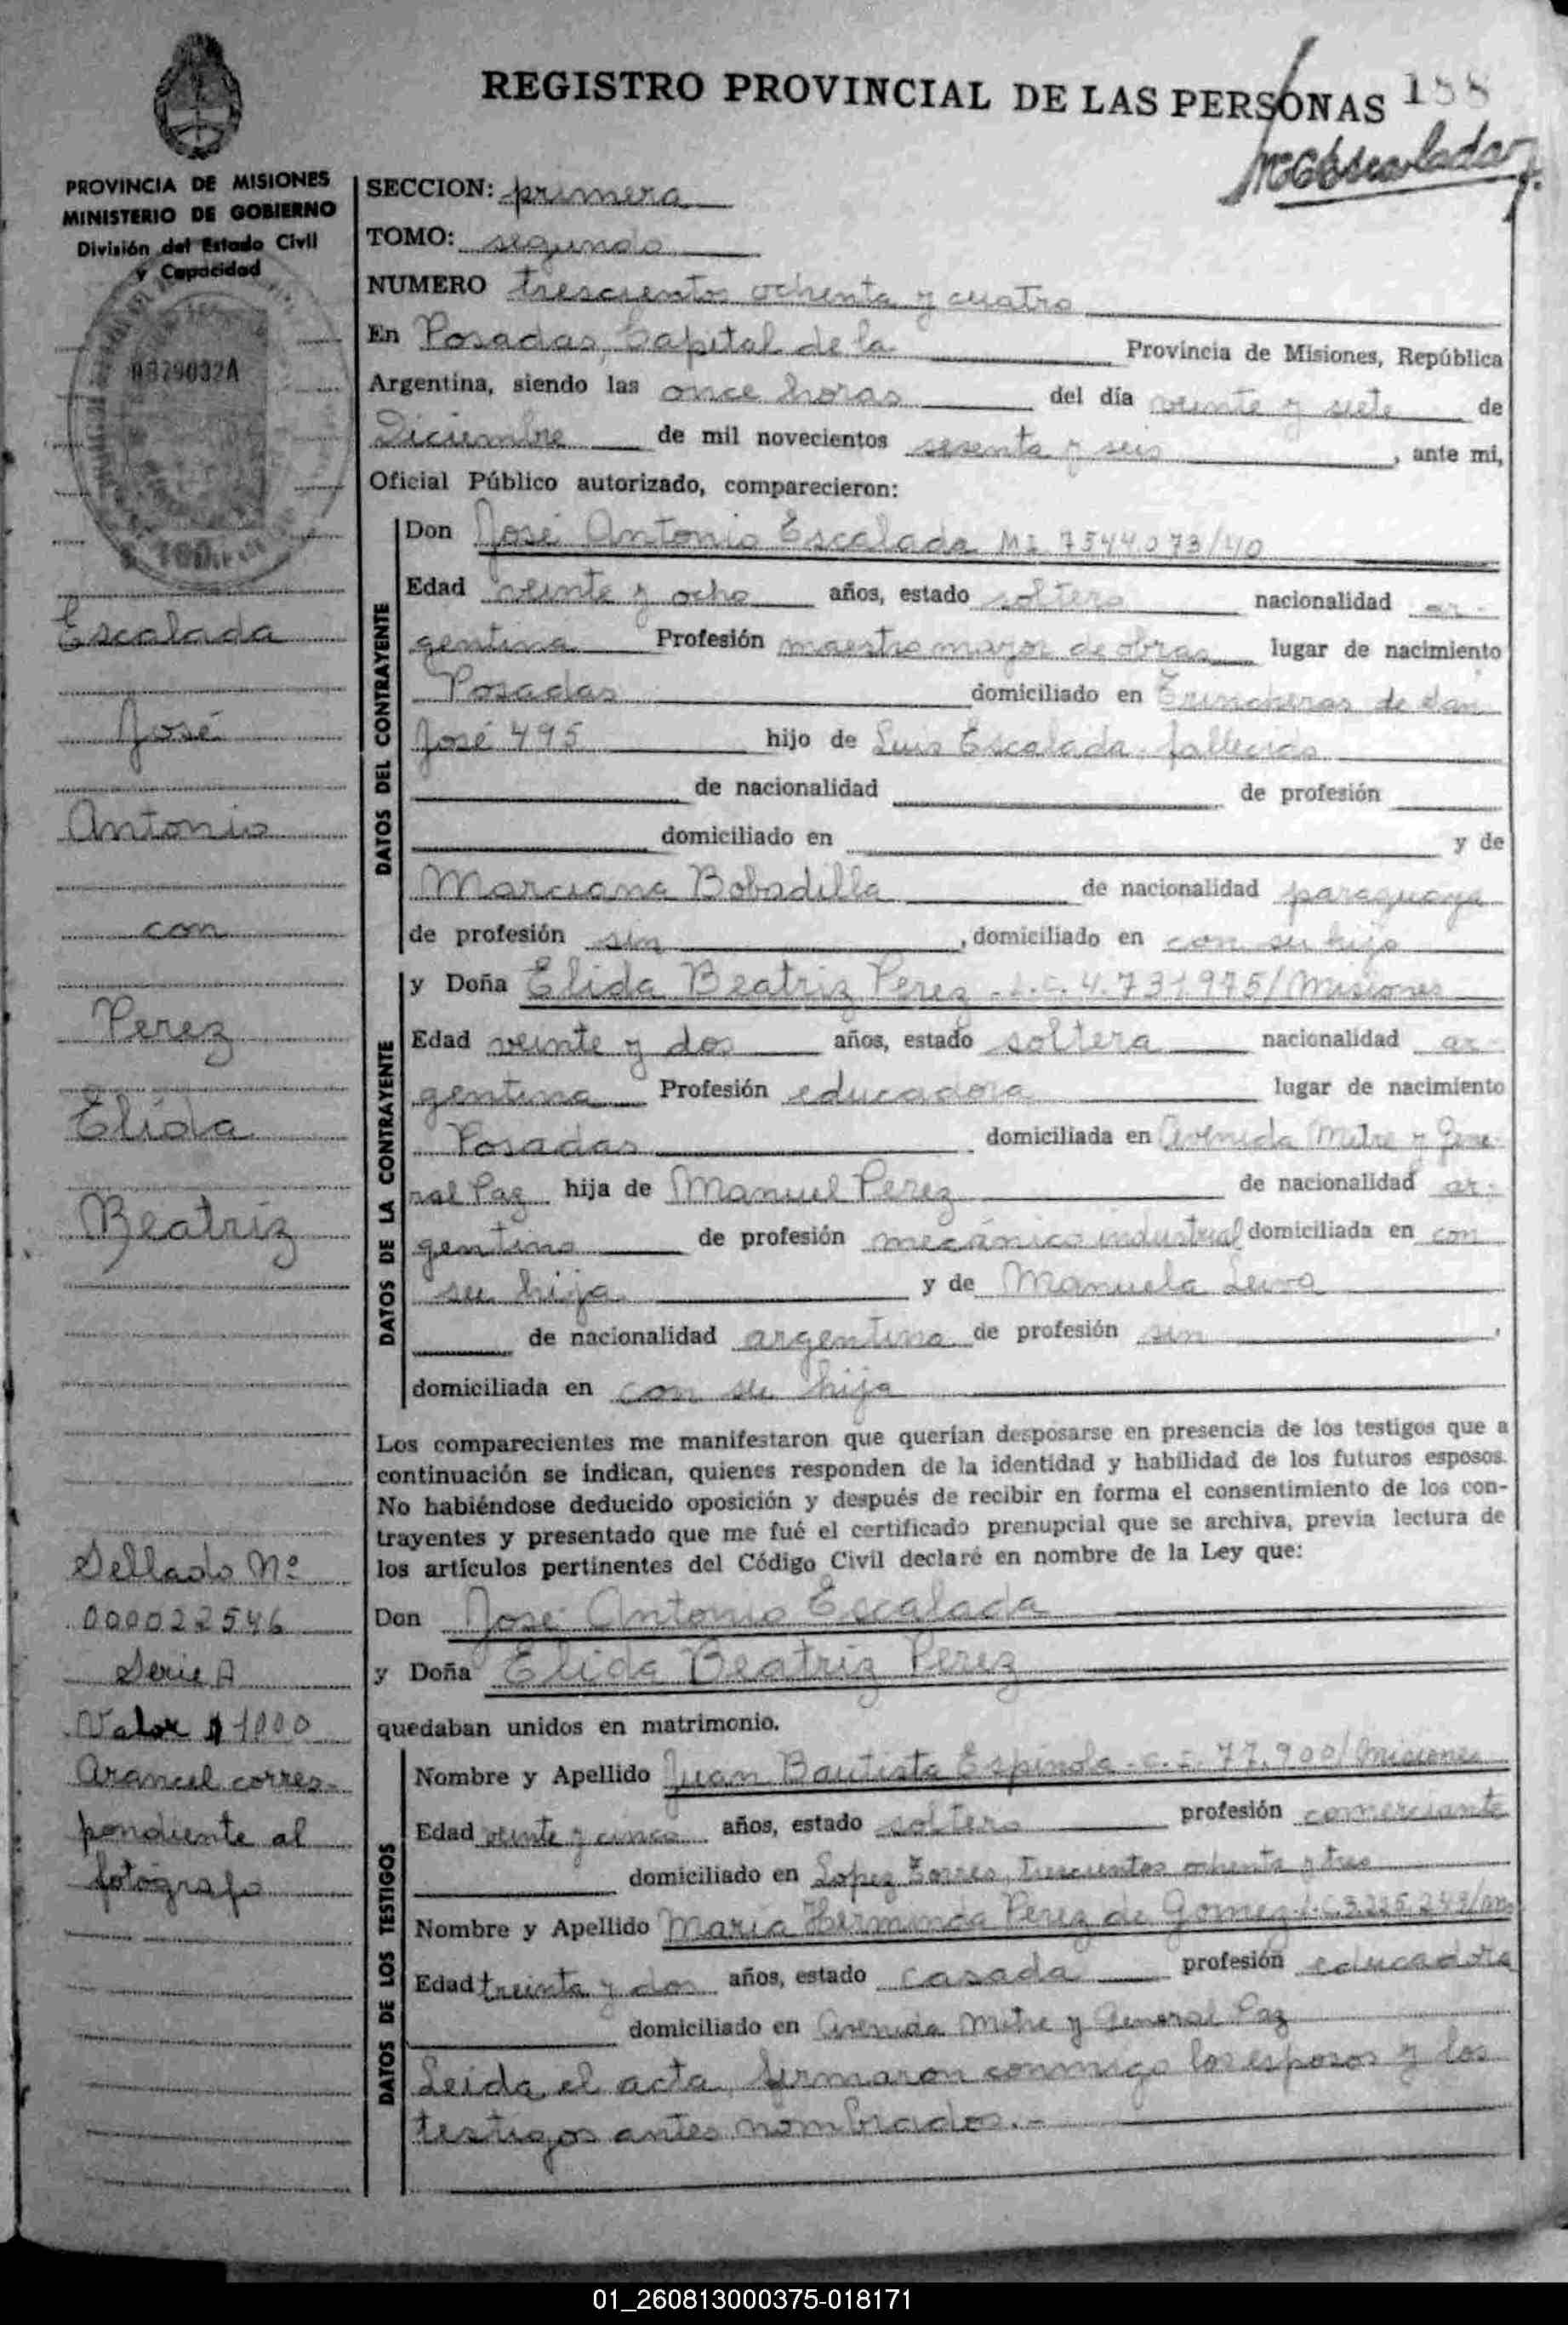 REGISTRO PROVINCIAL DE LAS PERSONAS 158
PROVINCIA DE MISIONES
MINISTERIO DE GOBIERNO
División del Estado Civil
y Capacidad
0329032A
Escalada
José
Antonio
con
Perez
Elida
Beatriz
Sellado Nº
000022546
Serie A
Valor $ 1000
Arancel corres-
pondiente al
fotógrafo
SECCION: primera
TOMO: segundo
NUMERO trescientos ochenta y cuatro
En Posadas, Capital de la Provincia de Misiones, República
Argentina, siendo las once horas del día veinte y siete de
Diciembre de mil novecientos sesenta y seis, ante mi,
Oficial Público autorizado, comparecieron:
DATOS DEL CONTRAYENTE
Don José Antonio Escalada M.I. 7544073/40
Edad veinte y ocho años, estado soltero nacionalidad ar-
gentina Profesión maestro mayor de obras lugar de nacimiento
Posadas domiciliado en Trincheras de San
José 495 hijo de Luis Escalada fallecido
de nacionalidad de profesión
domiciliado en y de
Marciana Bobadilla de nacionalidad paraguaya
de profesión sin, domiciliado en con su hijo
DATOS DE LA CONTRAYENTE
y Doña Elida Beatriz Perez - L.C. 4.731975/Misiones
Edad veinte y dos años, estado soltera nacionalidad ar-
gentina Profesión educadora lugar de nacimiento
Posadas domiciliada en Avenida Mitre y Gene-
ral Paz hija de Manuel Perez de nacionalidad ar-
gentino de profesión mecánico industrial domiciliada en con
su hija y de Manuela Leiva
de nacionalidad argentina de profesión sin,
domiciliada en con su hija
Los comparecientes me manifestaron que querían desposarse en presencia de los testigos que a
continuación se indican, quienes responden de la identidad y habilidad de los futuros esposos.
No habiéndose deducido oposición y después de recibir en forma el consentimiento de los con-
trayentes y presentado que me fué el certificado prenupcial que se archiva, previa lectura de
los artículos pertinentes del Código Civil declaré en nombre de la Ley que:
Don José Antonio Escalada
y Doña Elida Beatriz Perez
quedaban unidos en matrimonio.
DATOS DE LOS TESTIGOS
Nombre y Apellido Juan Bautista Espinola - C.I. 77.900/Misiones
Edad veinte y cinco años, estado soltero profesión comerciante
domiciliado en Lopez Torres, trescientos ochenta y tres
Nombre y Apellido Maria Herminda Perez de Gomez
Edad treinta y dos años, estado casada profesión educadora
domiciliado en Avenida Mitre y General Paz
Leida el acta, firmaron conmigo los esposos y los
testigos antes nombrados.-
01_260813000375-018171